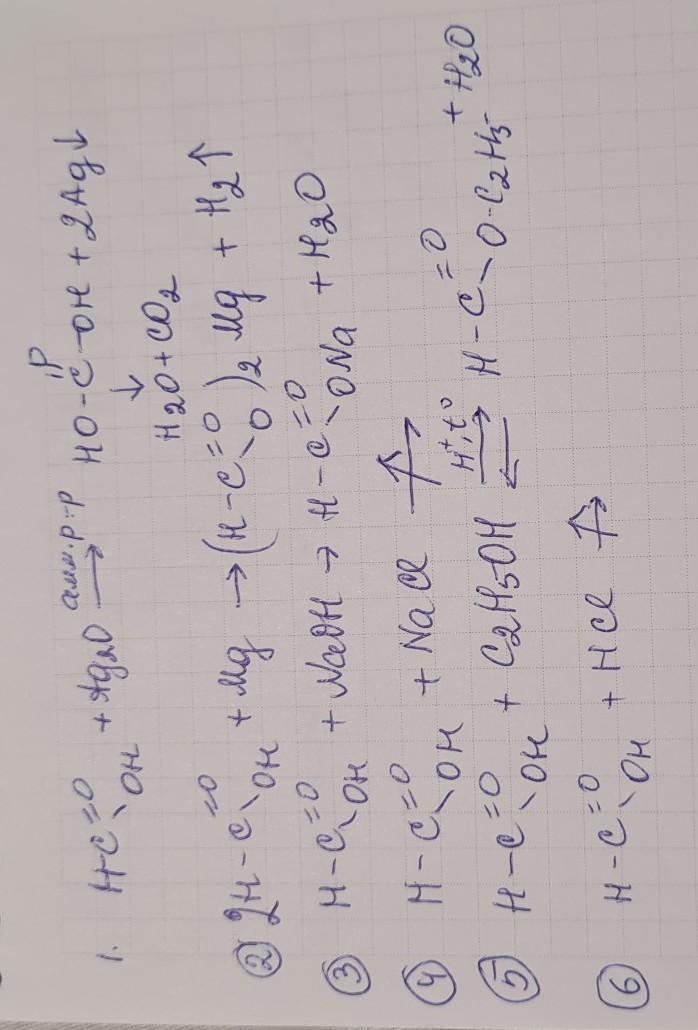 1. H-C=O OH + Ag2O амм.р-р → HO-C-OH + 2Ag↓
O
↓
H2O + CO2
② 2H-C=O OH + Mg → (H-C=O O)2 Mg + H2↑
③ H-C=O OH + NaOH → H-C=O ONa + H2O
④ H-C=O OH + NaCl ↛
⑤ H-C=O OH + C2H5OH H+,t° ⇄ H-C=O O-C2H5 + H2O
⑥ H-C=O OH + HCl ↛